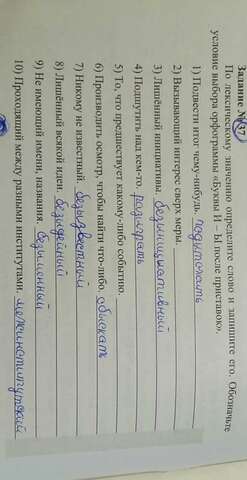 Задание № 37
По лексическому значению определите слово и запишите его. Обозначьте
условие выбора орфограммы «Буквы И – Ы после приставок».
1) Подвести итог чему-нибудь. подытожить
2) Вызывающий интерес сверх меры.
3) Лишённый инициативы. безынициативный
4) Подшутить над кем-то. разыграть
5) То, что предшествует какому-либо событию.
6) Производить осмотр, чтобы найти что-либо. обыскать
7) Никому не известный. безызвестный
8) Лишённый всякой идеи. безыдейный
9) Не имеющий имени, названия. безыменный
10) Проходящий между разными институтами. межинститутский